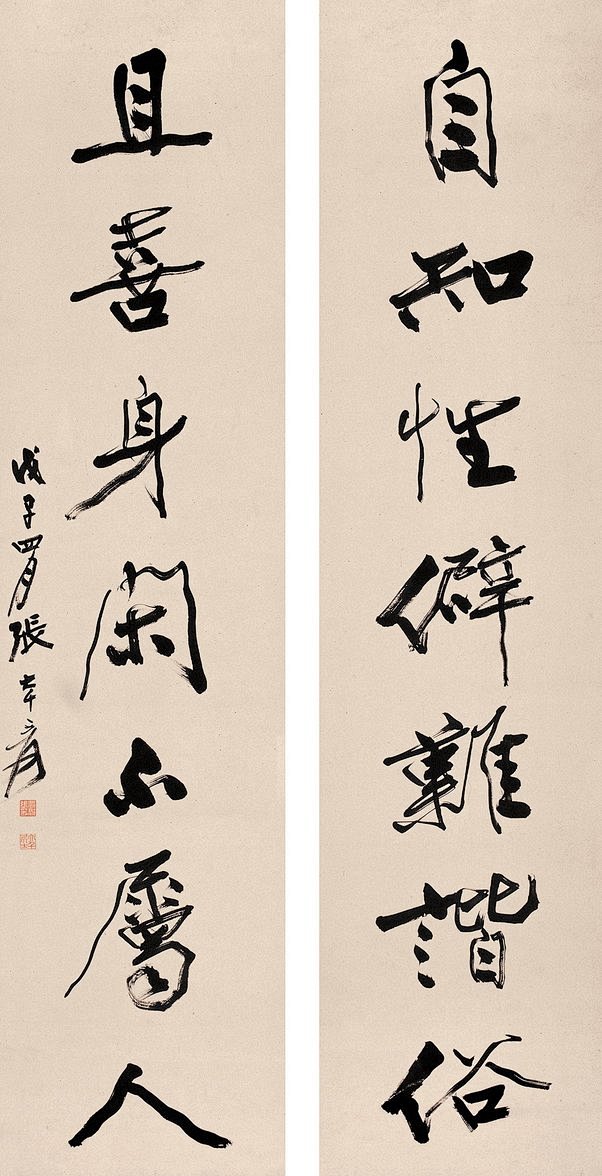 自知性僻難諧俗
且喜身閑不属人
戊子四月張大千爰